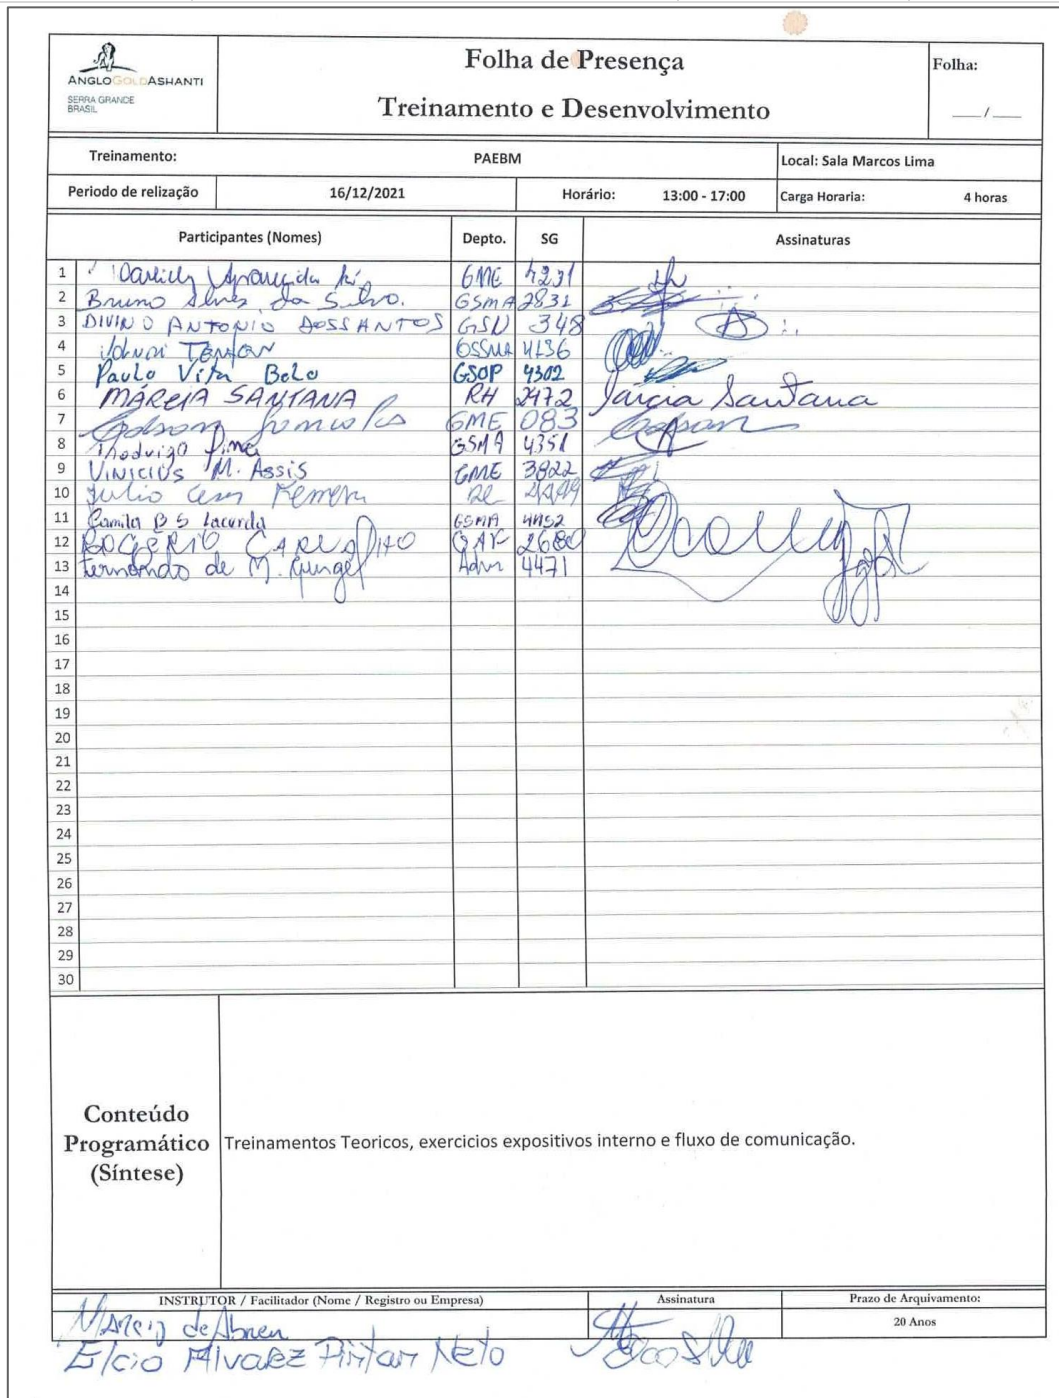 Folha de Presença
Treinamento e Desenvolvimento
Folha:
__/__
ANGLOGOLDASHANTI
SERRA GRANDE
BRASIL
Treinamento: PAEBM Local: Sala Marcos Lima
Periodo de relização 16/12/2021 Horário: 13:00 - 17:00 Carga Horaria: 4 horas
Participantes (Nomes) Depto. SG Assinaturas
1 Aparecida GME 4231
2 Bruno Alves da Silva. GSMA 2831
3 DIVINO ANTONIO DOSSANTOS GSN 348
4 GSSMA 4136
5 Paulo Vita Belo GSOP 4302
6 MÁRCIA SANTANA RH 2472 Márcia Santana
7 GME 083
8 Rhodrigo GSMA 4351
9 VINICIUS M. ASSIS GME 3822
10 Julio Cesar
11 Camila B S Lacerda GSMA 4452
12 ROGÉRIO CARVALHO 2680
13 Fernando de M. Gurgel Adm 4471
14
15
16
17
18
19
20
21
22
23
24
25
26
27
28
29
30
Conteúdo
Programático
(Síntese)
Treinamentos Teoricos, exercicios expositivos interno e fluxo de comunicação.
INSTRUTOR / Facilitador (Nome / Registro ou Empresa) Assinatura Prazo de Arquivamento:
Marcio de Abreu 20 Anos
Elcio Alvarez Pintar Neto